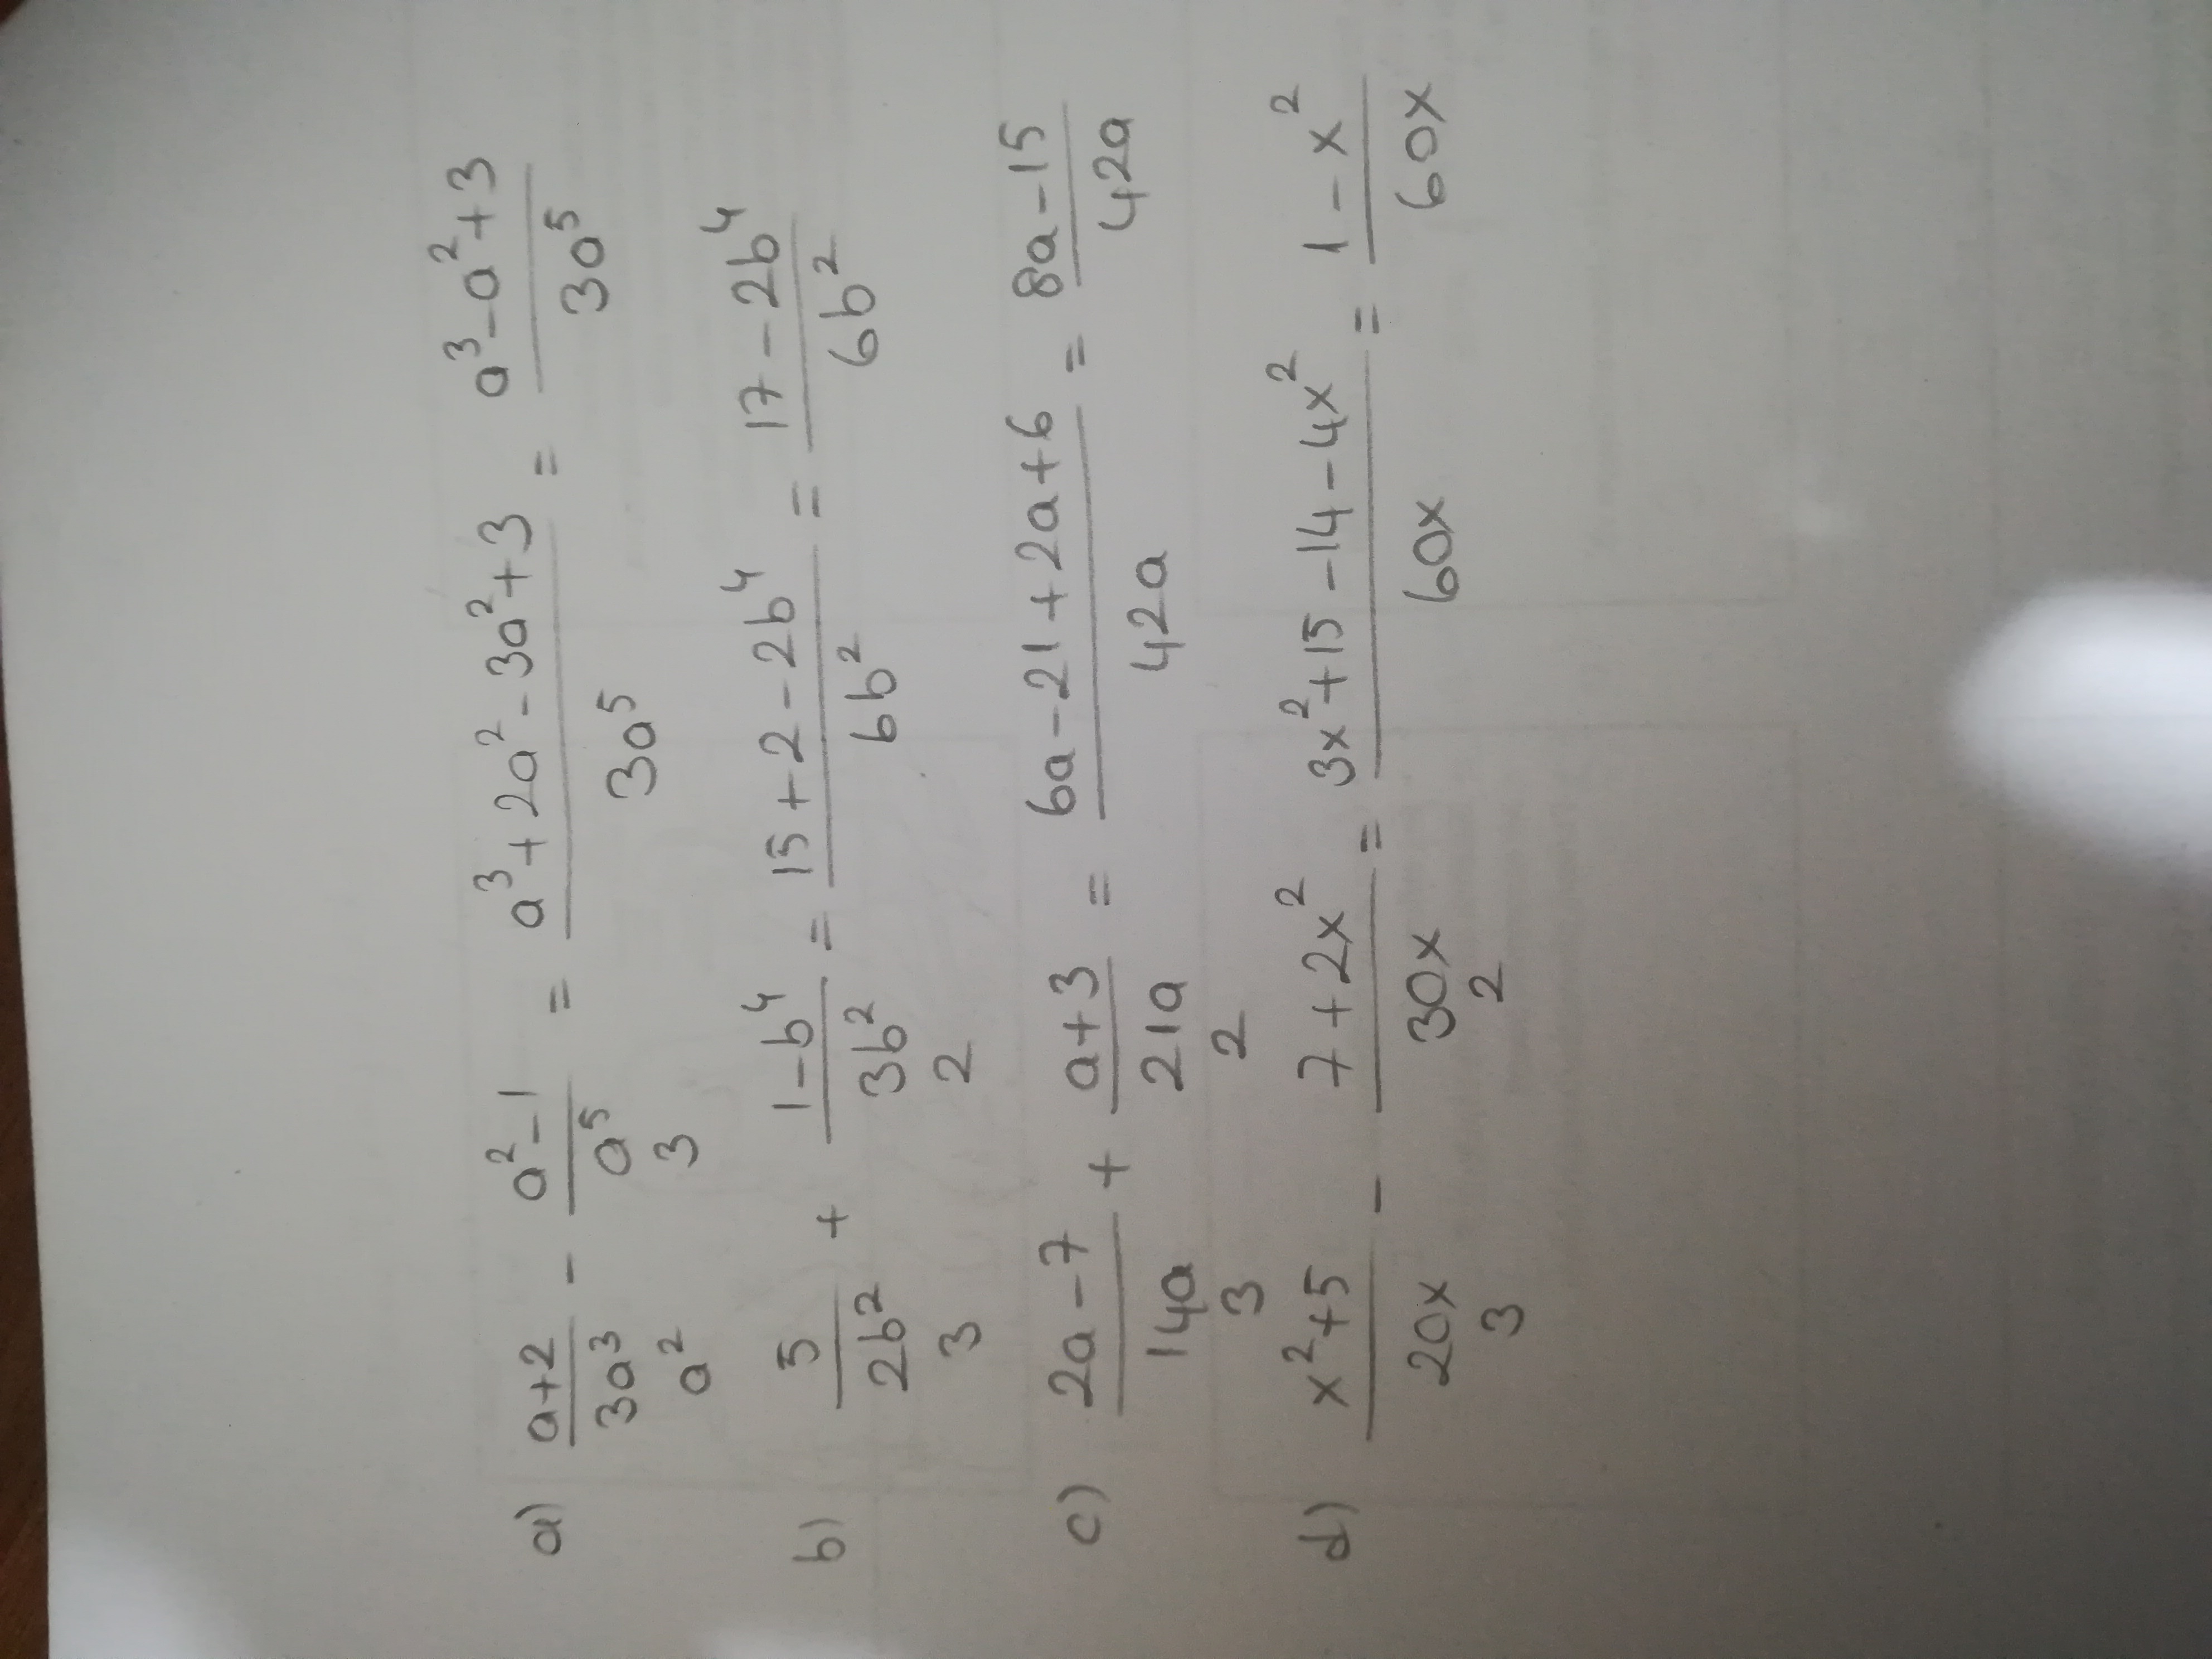 a) (a+2)/(3a³) - (a²-1)/(a⁵) = (a³+2a²-3a²+3)/(3a⁵) = (a³-a²+3)/(3a⁵)
a² 3
b) 5/(2b²) + (1-b⁴)/(3b²) = (15+2-2b⁴)/(6b²) = (17-2b⁴)/(6b²)
3 2
c) (2a-7)/(14a) + (a+3)/(21a) = (6a-21+2a+6)/(42a) = (8a-15)/(42a)
3 2
d) (x²+5)/(20x) - (7+2x²)/(30x) = (3x²+15-14-4x²)/(60x) = (1-x²)/(60x)
3 2